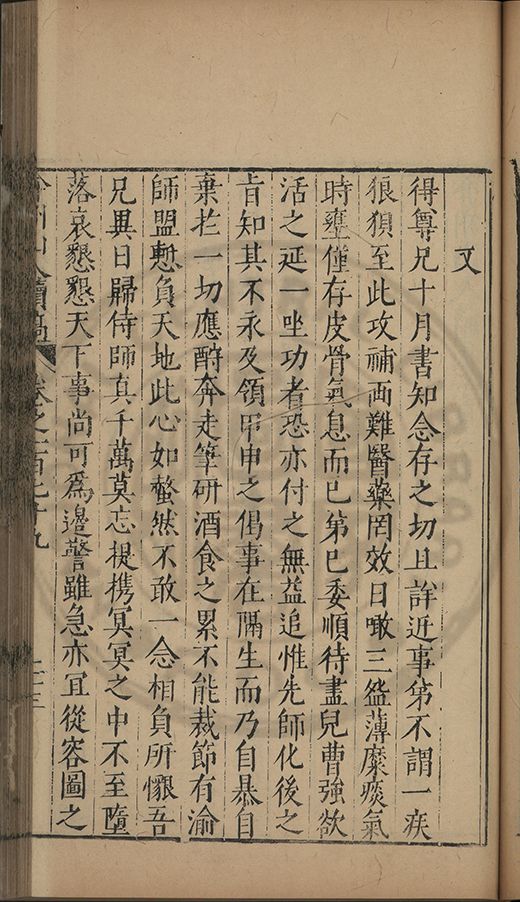 又
得尊兄十月書知念存之切且詳近事第不謂一疾
狼狽至此攻補両難醫藥罔效日噉三盌薄糜痰氣
時壅僅存皮骨氣息而已第已委順待盡兒曹強欲
活之延一坐功者恐亦付之無益追惟先師化後之
肯知其不永及領甲申之偈事在隔生而乃自暴自
棄於一切應酧奔走筆研酒食之累不能裁節有渝
師盟慙負天地此心如螫然不敢一念相負所懇吾
兄異日歸侍師真千萬莫忘提携冥冥之中不至墮
落哀懇懇天下事尚可爲邊警雖急亦宜從容圖之
山人續稿 卷之一百七十九